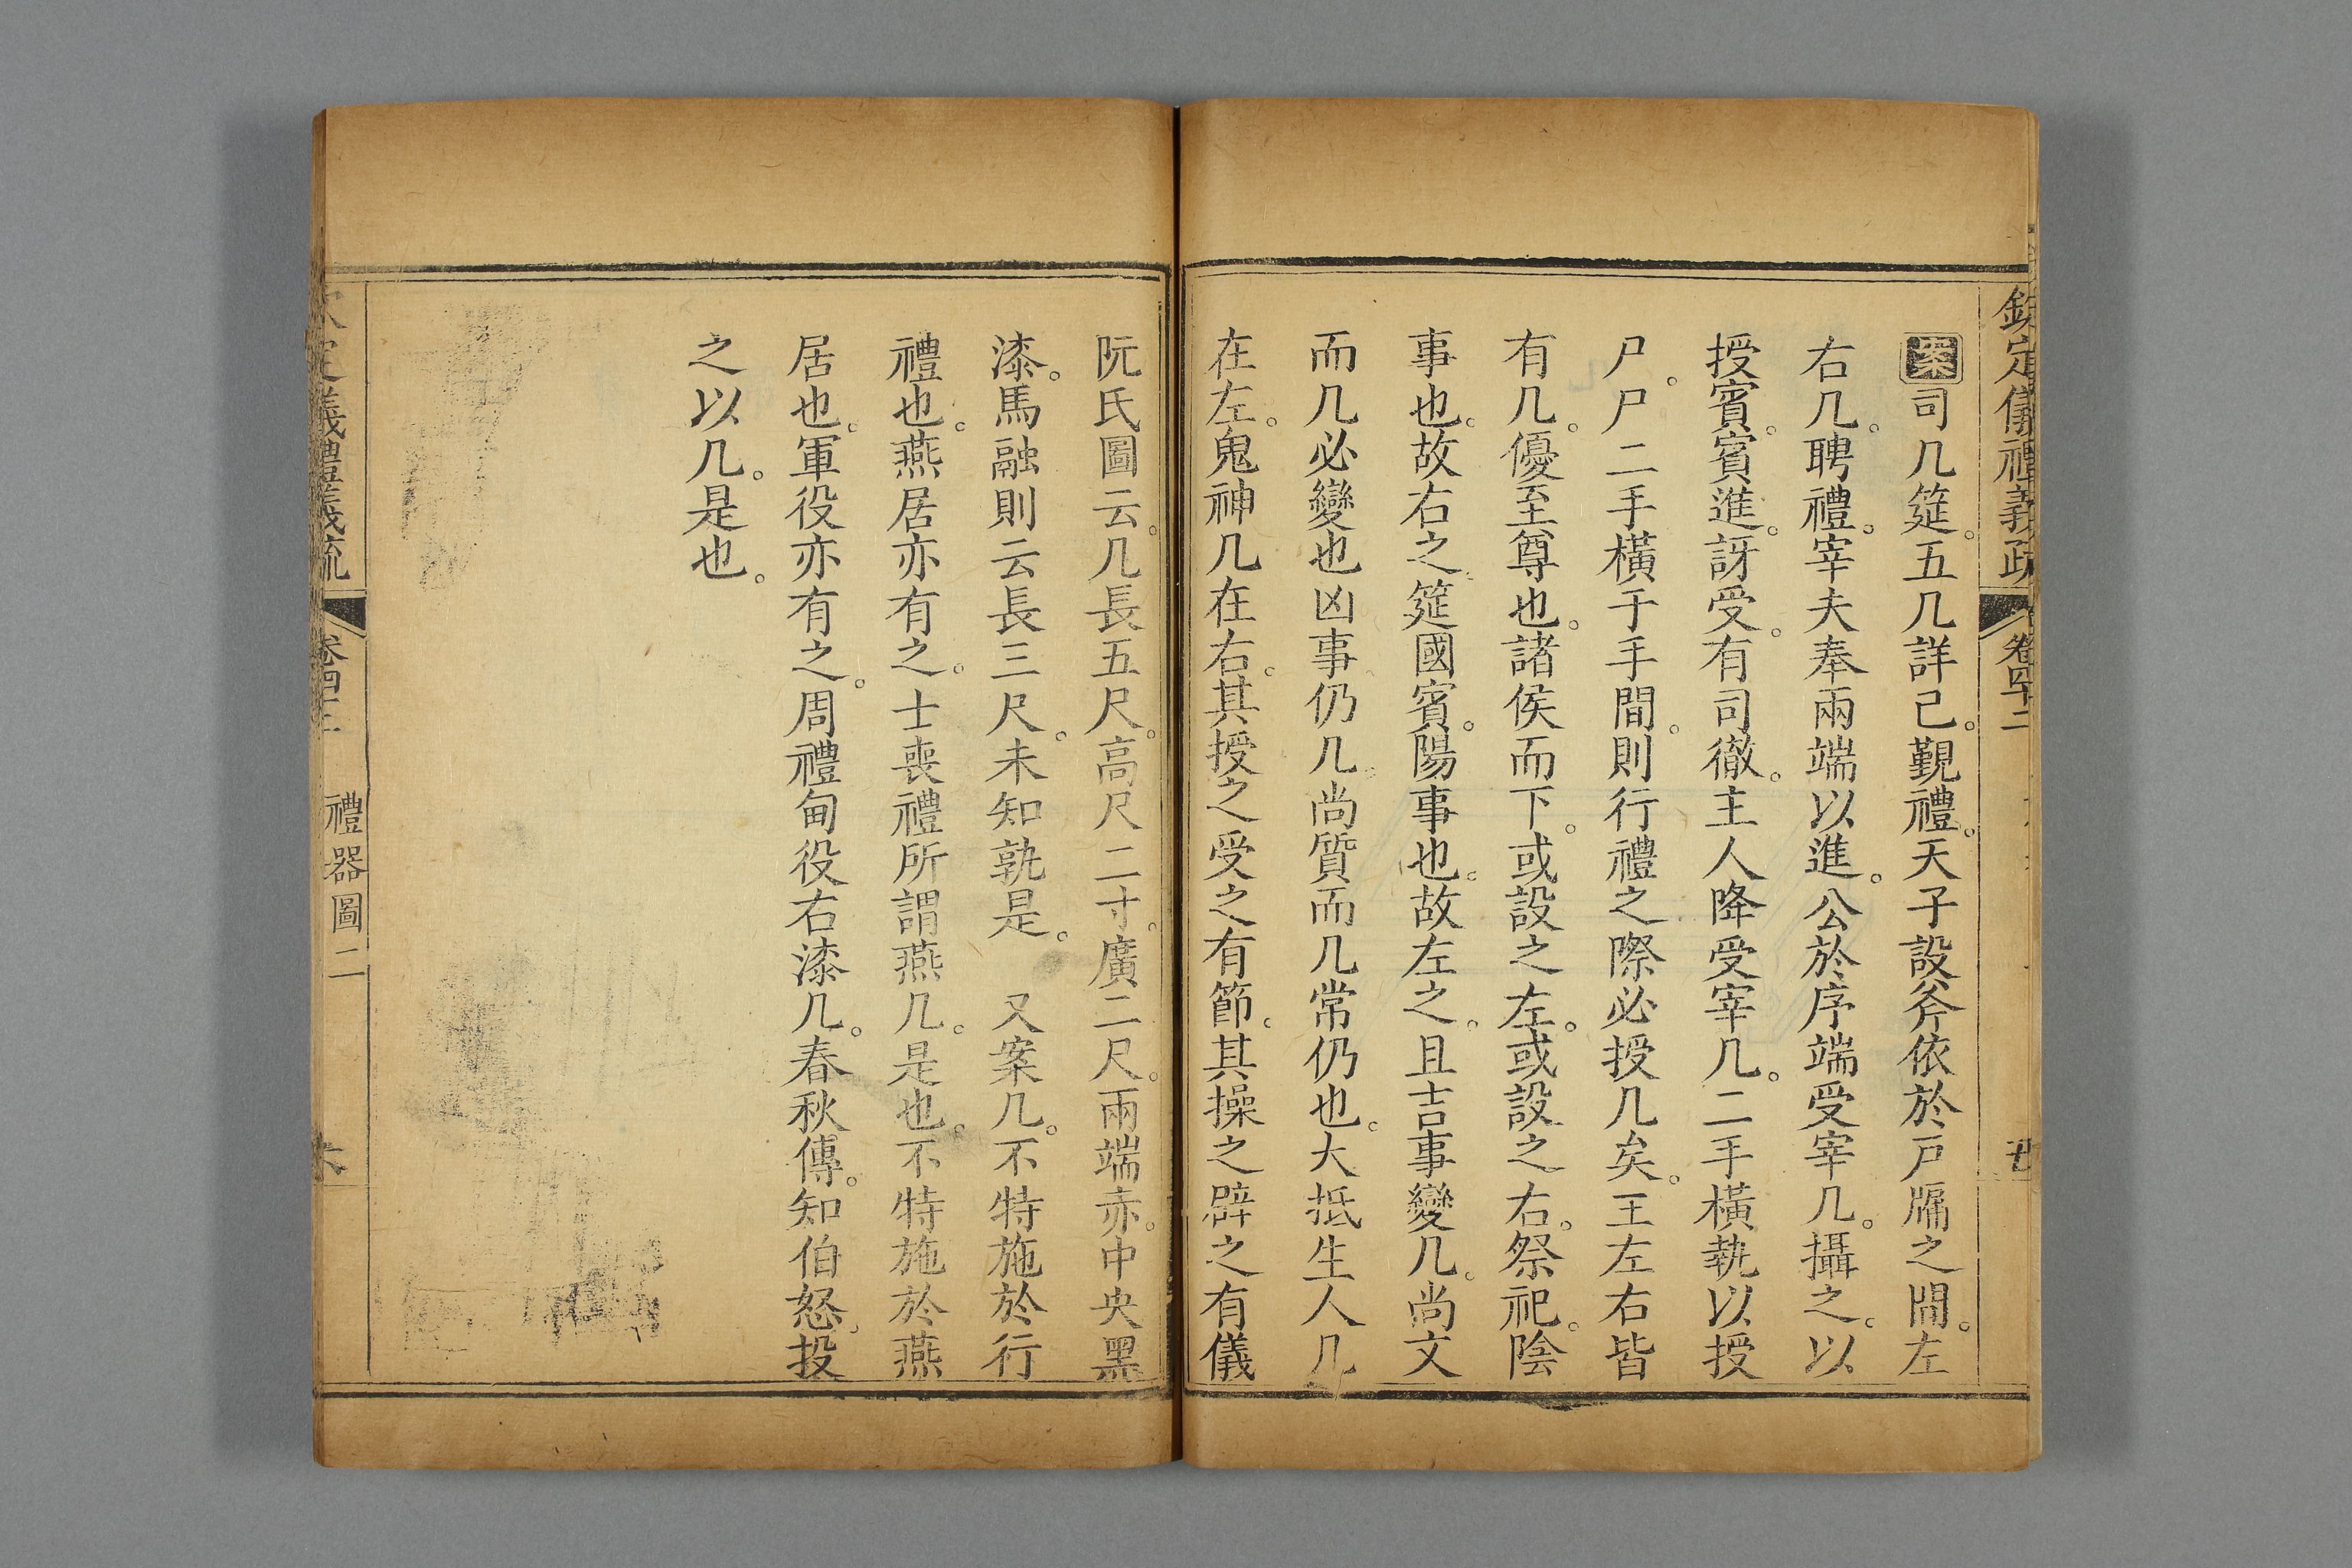 欽定儀禮義疏 卷四十二
案司几筵。五几詳己。覲禮。天子設斧依於戸牖之間。左
右几。聘禮。宰夫奉兩端以進。公於序端受宰几。攝之。以
授賓。賓進。訝受。有司徹。主人降受宰几。二手橫執以授
尸。尸二手橫于手間。則行禮之際必授几矣。王左右皆
有几。優至尊也。諸侯而下。或設之左。或設之右。祭祀。陰
事也。故右之。筵國賓。陽事也。故左之。且吉事變几。尚文
而几必變也凶事仍几。尚質而几常仍也。大抵生人几
在左。鬼神几在右。其授之受之有節。其操之辟之有儀
阮氏圖云。几長五尺。高尺二寸。廣二尺。兩端赤。中央黑
漆。馬融則云長三尺。未知孰是。 又案几。不特施於行
禮也。燕居亦有之。士喪禮所謂燕几。是也。不特施於燕
居也。軍役亦有之。周禮甸役右漆几。春秋傳。知伯怒。投
之以几。是也。
儀禮義疏 卷四十二 禮器圖二